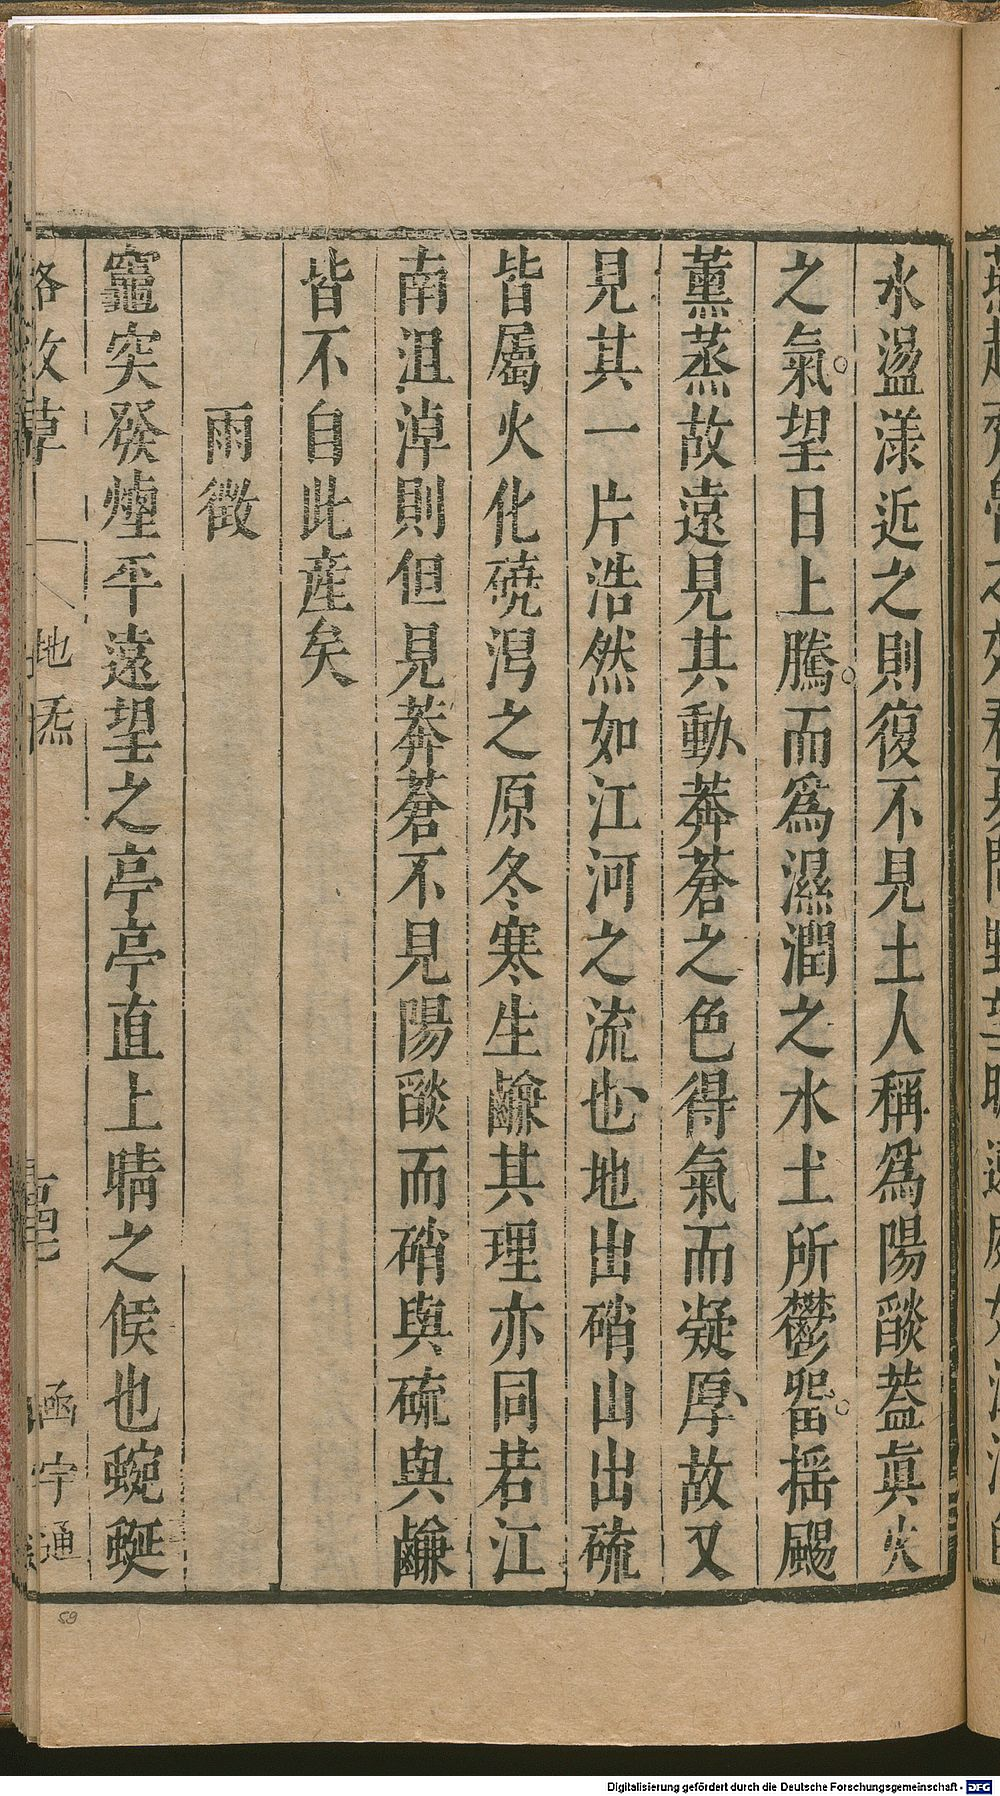 水盪漾近之則復不見土人稱爲陽燄蓋真火
之氣望日上騰而爲濕潤之水土所鬱留揺颺
薰蒸故遠見其動莽蒼之色得氣而凝厚故又
見其一片浩然如江河之流也地出硝山出硫
皆屬火化磽潟之原冬寒生鹻其理亦同若江
南沮淖則但見莽蒼不見陽燄而硝與硫與鹻
皆不自此產矣
雨徵
竈突發煙平遠望之亭亭直上晴之候也蜿蜒
格致草
地炁
函宇通
59
Digitalisierung gefördert durch die Deutsche Forschungsgemeinschaft - DFG